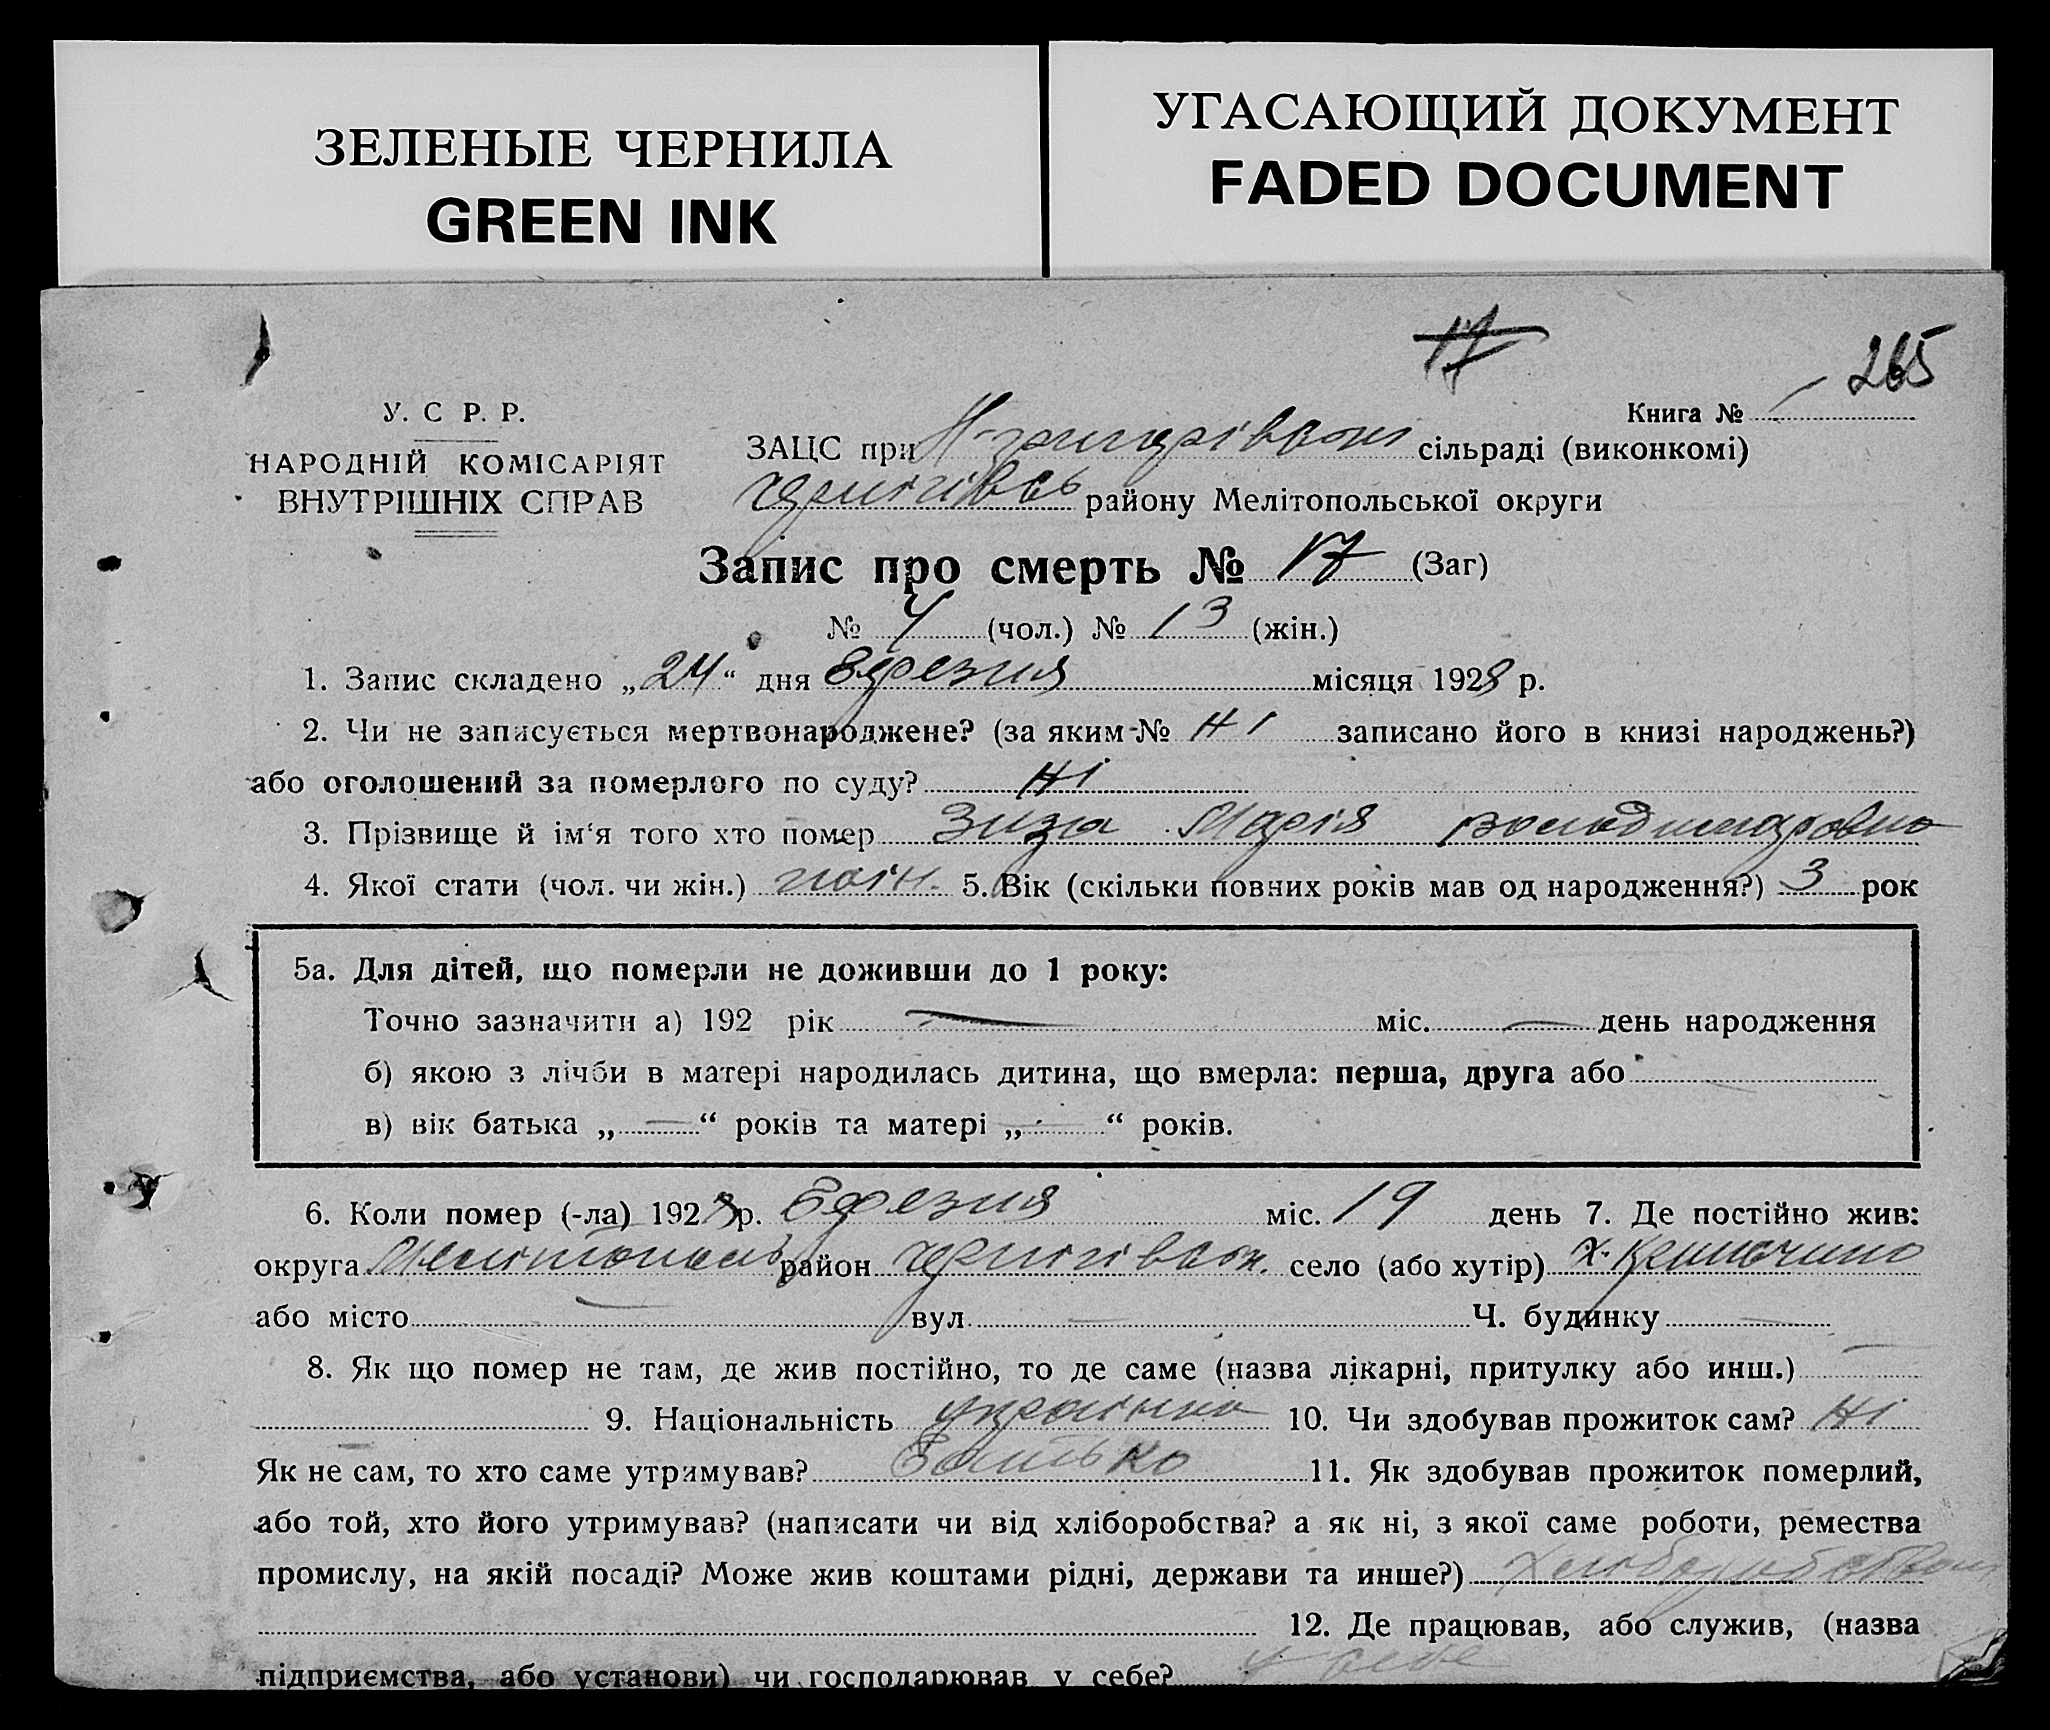 ЗЕЛЕНЫЕ ЧЕРНИЛА
GREEN INK
УГАСАЮЩИЙ ДОКУМЕНТ
FADED DOCUMENT
17
265
У. С Р. Р.
НАРОДНІЙ КОМІСАРІЯТ
ВНУТРІШНІХ СПРАВ
Книга №
ЗАЦС при сільраді (виконкомі)
Чернігівсь району Мелітопольської округи
Запис про смерть № 17 (Заг)
№ 4 (чол.) № 13 (жін.)
1. Запис складено „24“ дня Березня місяця 1928 р.
2. Чи не записується мертвонароджене? (за яким № Ні записано його в книзі народжень?)
або оголошений за померлого по суду? Ні
3. Прізвище й ім'я того хто помер Зиза Марія
4. Якої стати (чол. чи жін.) жін. 5. Вік (скільки повних років мав од народження?) 3 рок
5а. Для дітей, що померли не доживши до 1 року:
Точно зазначити а) 192 рік — міс. — день народження
б) якою з лічби в матері народилась дитина, що вмерла: перша, друга або
в) вік батька „—“ років та матері „—“ років.
6. Коли помер (-ла) 1928 р. Березня міс. 19 день 7. Де постійно жив:
округа Мелітополь район Чернігівськ. село (або хутір) х.
або місто — вул. — Ч. будинку —
8. Як що помер не там, де жив постійно, то де саме (назва лікарні, притулку або инш.) —
9. Національність українка 10. Чи здобував прожиток сам? Ні
Як не сам, то хто саме утримував? Батько 11. Як здобував прожиток померлий,
або той, хто його утримував? (написати чи від хліборобства? а як ні, з якої саме роботи, ремества
промислу, на якій посаді? Може жив коштами рідні, держави та инше?)
12. Де працював, або служив, (назва
підприємства, або установи) чи господарював у себе? у себе